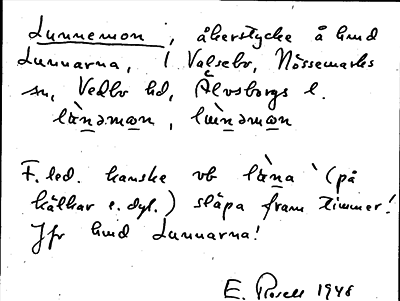 Lunnemon, åkerstycke å hmd
Lunnarna, i Valsebo, Nössemarks
sn, Vedbo hd, Älvsborgs l.
F. led. kanske vb (på
kälkar e. dyl.) släpa fram timmer!
Jfr hmd Lunnarna!
E. Rosell 1946